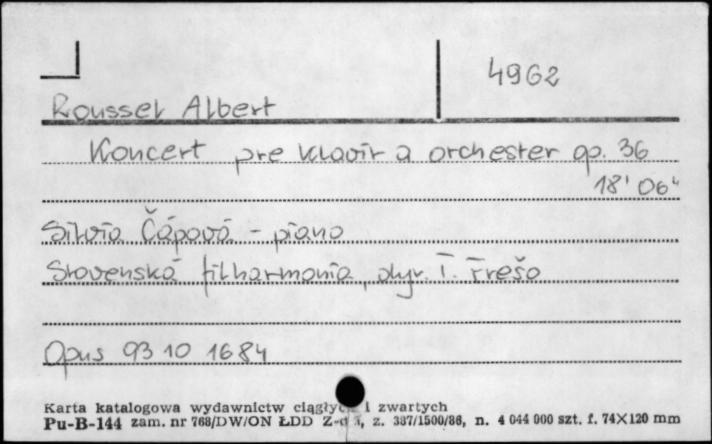 4962
Roussel Albert
Koncert pre klavír a orchester op. 36
18' 06"
Silvia Čápová - piano
Slovenská filharmonia, dyr. T. Frešo
Opus 9310 1684
Karta katalogowa wydawnictw ciągłych i zwartych
Pu-B-144 zam. nr 768/DW/ON ŁDD z. 387/1500/86, n. 4 044 000 szt. f. 74X120 mm